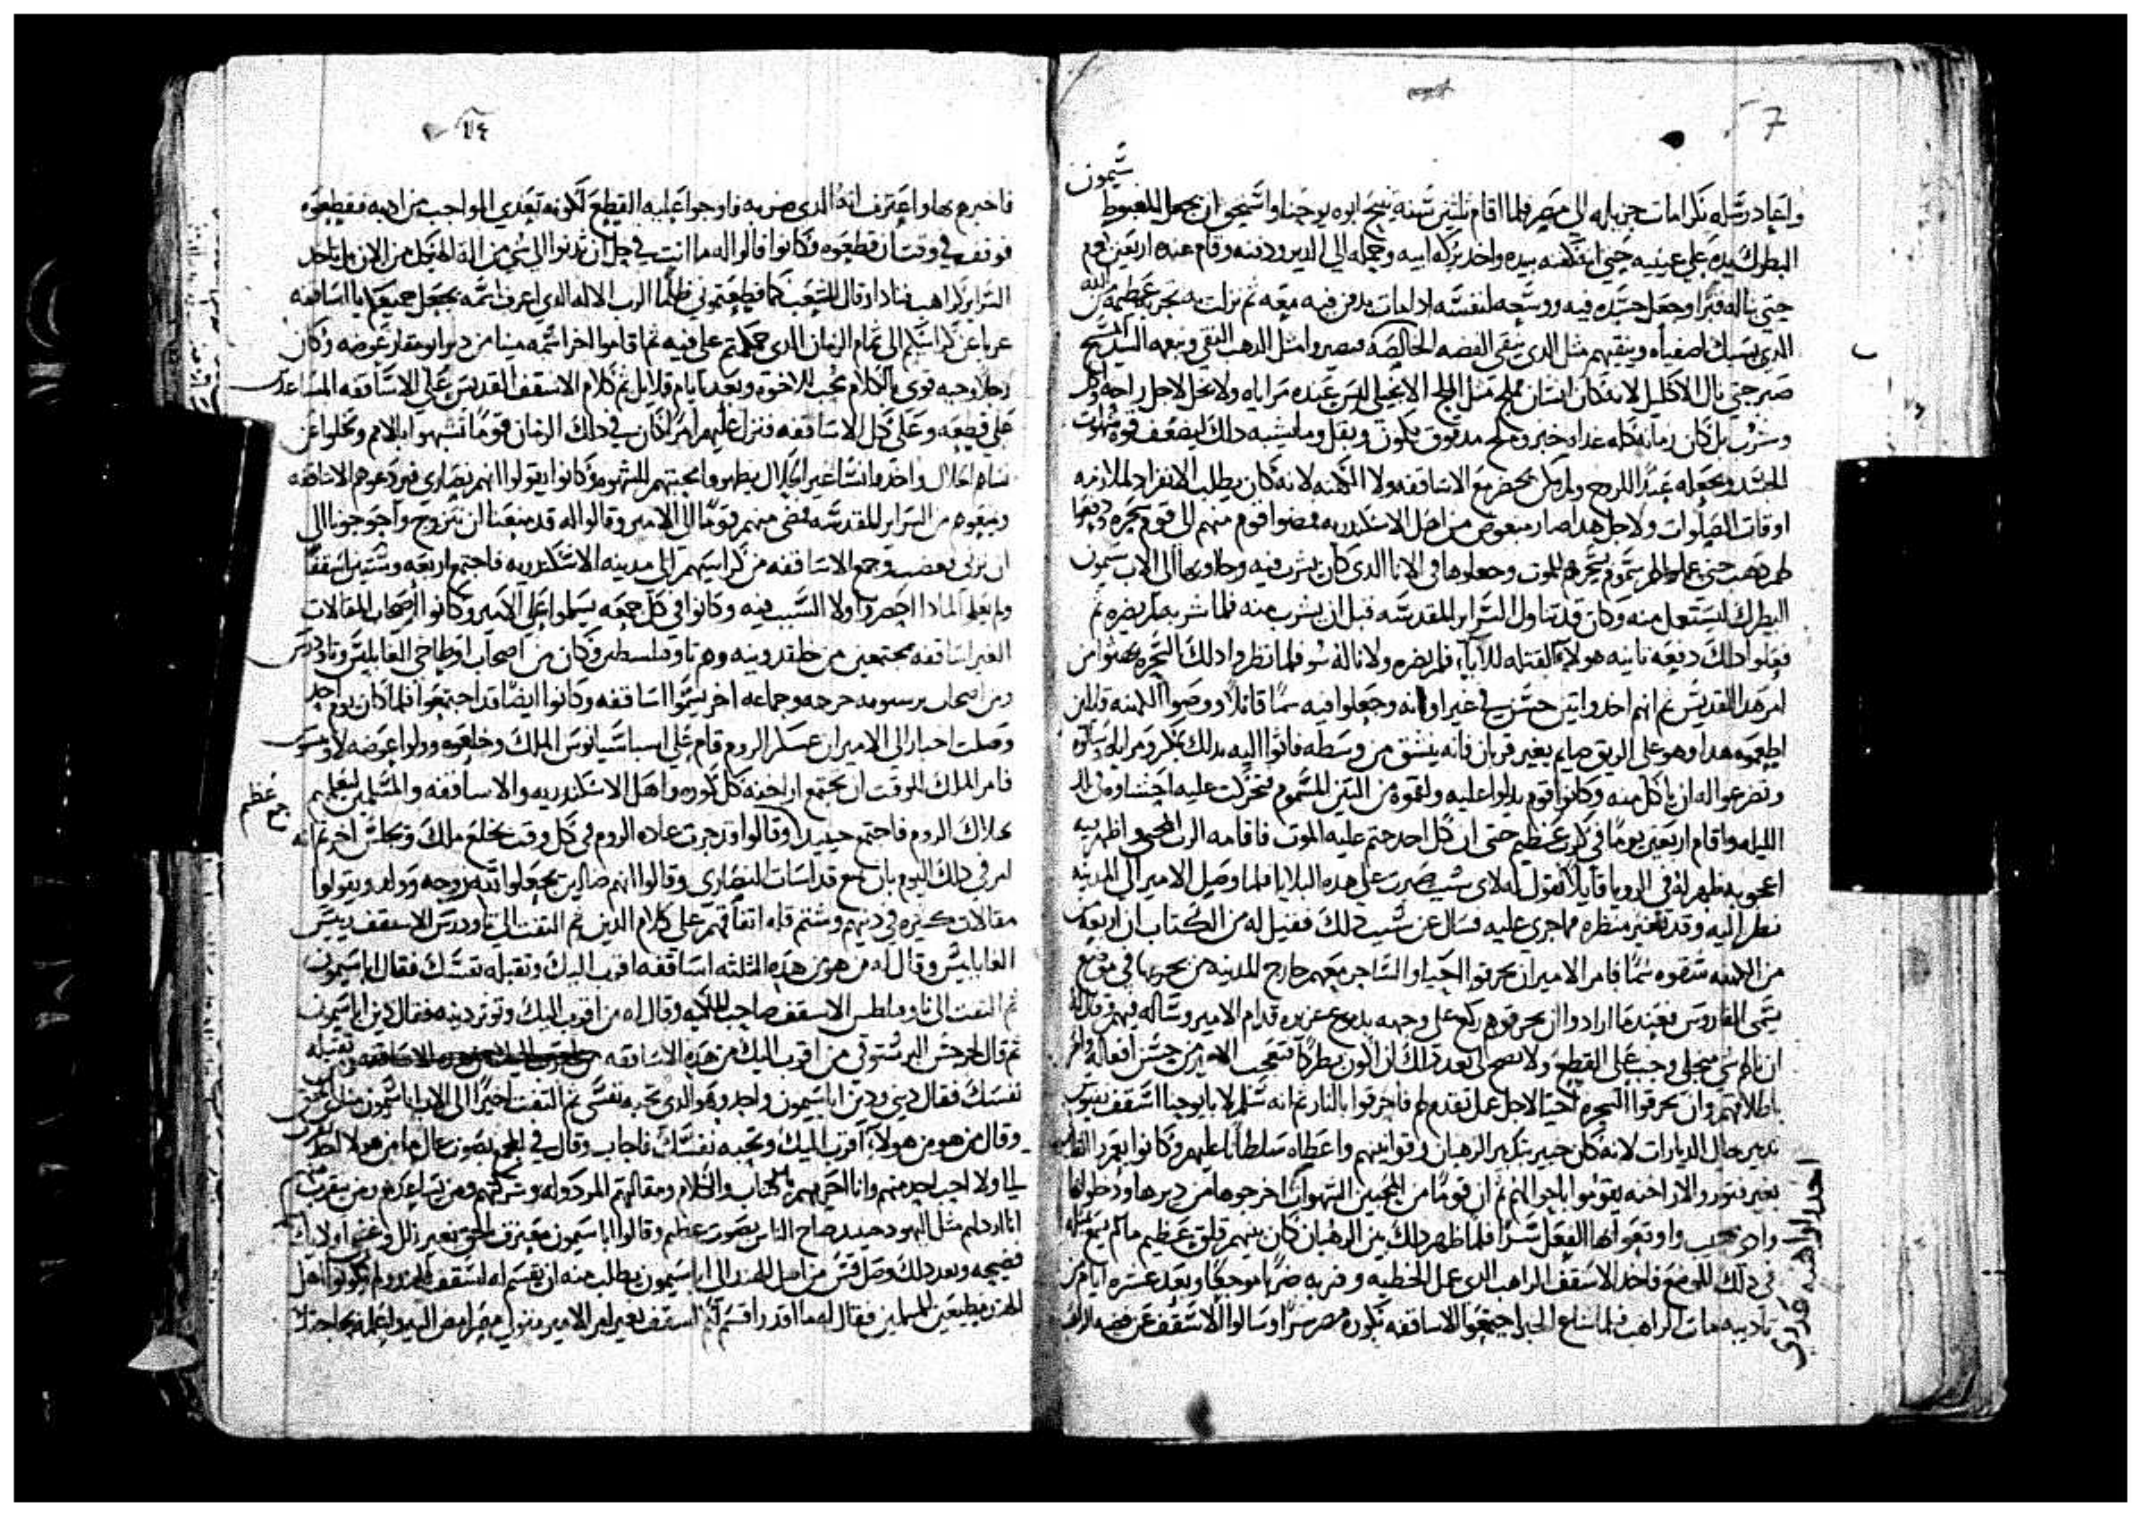 شيمون
واعاد رسله بكرامات جزيله الى مصر فلما اقام ثلثين سنه تنيح ابوه يوحنا واستحق ان يجعل المغبوط
البطرك يده على عينيه حتى انه كفنه بيده واخد بركه ابيه وحمله الى الدير ودفنه وقام عنده اربعين يوم
حتى بنا له قبرا وجعل جسده فيه ووسعه لنفسه ادا مات يدفن فيه معه ثم نزلت به تجربه عظيمه من الله
الدى يسبك اصفياه وينقيهم مثل الدى ينقى الفضه الخالصه فيصيروا مثل الدهب النقى ونعمه السيد المسيح
صبر حتى نال الاكليل لانه كان انسان مملح مثل الملح الانجيلى ليس عنده مراياه ولا يحل لاجل راحه واكل
وشرب بل كان زمانه كله غداه خبز وملح مدقوق بكمون وبقل وما يشبه دلك ليضعف قوه شهوات
الجسد ويجعله عبدا للروح ولم يكن يحضر مع الاساقفه ولا الكهنه لانه كان يطلب الانفراد لملازمه
اوقات الصلوات ولاجل هدا صار مبغوض من اهل الاسكندريه فمضوا قوم منهم الى قوم سحره ودفعوا
لهم دهب حتى عملوا لهم سموم بسحرهم للموت وجعلوها فى الانا الدى كان يشرب فيه وجاوا بها الى الاب سيمون
البطرك ليستعمل منه وكان قد تناول السراير المقدسه قبل ان يشرب منه فلما شربه لم يضره ثم
فعلوا دلك دفعه تانيه هولاء القتله للاباء فلم يضره ولا ناله سو فلما نظروا دلك السحره بهتوا من
امر هدا القديس ثم انهم اخدوا تين حسن فى غير اوانه وجعلوا فيه سما قاتلا ووصوا الكهنه قايلين
اطعموه هدا وهو على الريق صايم بغير قربان فانه ينشق من وسطه فاتوا اليه بدلك بمكر ومراياه وسالوه
وتضرعوا له ان ياكل منه وكانوا قوم يدلوا عليه ولقموه من التين المسموم فتحركت عليه احشاوه فى تلك
الليله واقام اربعين يوما فى كرب عظيم حتى ان كل احد حتم عليه الموت فاقامه الرب المحيى واظهر فيه
اعجوبه فظهر له فى الرويا قايلا تقول له لاى سبب صبرت على هده البلايا فلما وصل الامير الى المدينه
نظر اليه وقد تغير منظره مما جرى عليه فسال عن سبب دلك فقيل له من الكتاب ان اربعه
من الكهنه سقوه سما فامر الامير ان يحرقوا احيا والساحر معهم خارج المدينه من بحريها فى موضع
يسمى الفاروس فعندما ارادوا ان يحرقوهم ركع على وجهه بدموع غزيره قدام الامير وساله فيهم وقال له
ان نالهم شى من اجلى وجب على القطع ولا يصح لى بعد دلك ان اكون بطركا فتعجب الامير من حسن افعاله وامر
باطلاقهم وان يحرقوا السحره احيا لاجل عمل تقدم لهم فاحرقوا بالنار ثم انه سلم لابا يوحنا اسقف نقيوس
تدبير حال الديارات لانه كان خبير بتدبير الرهبان وقوانينهم واعطاه سلطانا عليهم وكانوا يعمروا القلالى
بغير فتور والاراخنه يقوموا باحوالهم ثم ان قوما من المحبين الشهوات اخرجوها من ديرها ودخلوا بها
وادى هبيب واوقعوا بها الفعل سرا فلما ظهر دلك بين الرهبان كان بينهم قلق عظيم ما لم يسمع مثله
فى دلك الموضع فاخد الاسقف الراهب الدى عمل الخطيه وضربه ضربا موجعا وبعد عشره ايام من
تاديبه مات الراهب فلما شاع الخبر اجتمعوا الاساقفه بكوره مصر سرا وسالوا الاسقف عن قضيه الراهب
احدوا راهبه عدرى
٧٤
فاخبرهم بها واعترف انه الدى ضربه فاوجبوا عليه القطع لكونه تعدى المواجب من ادبه فقطعوه
فوقف فى وقت ان قطعوه وكانوا قالوا له ما انت فى حل ان تدنوا الى شى من اله الهيكل من الان بل تاخد
السراير كراهب فنادا وقال للشعب كما قطعتمونى ظلما الرب الاله الدى اعرف اسمه يجعل جميعكم يا اساقفه
غربا عن كراسيكم الى تمام الزمان الدى حكمتم على فيه ثم اقاموا اخر اسمه مينا من دير ابو مقار عوضه وكان
رجلا وجيه قوى بالكلام محب للاخوه وبعد ايام قلايل تم كلام الاسقف القديس على الاساقفه المساعدين
على قطعه وعلى كل الاساقفه فنزل عليهم امر لان كان فى دلك الزمان قوما تشبهوا بالامم وتخلوا عن
نساهم الحلال واخدوا نسا غير الحلال يظهروا محبتهم للشهوه وكانوا يقولوا انهم نصارى فردعوهم الاساقفه
ومنعوهم من السراير المقدسه فمضى منهم قوما الى الامير وقالوا له قد منعنا ان نتزوج واحوجونا الى
ان نزنى فغضب وجمع الاساقفه من كراسيهم الى مدينه الاسكندريه فاجتمع اربعه وستين اسقفا
ولم يعلم لمادا احضروا ولا السبب فيه وكانوا فى كل جمعه يسلموا على الامير وكانوا اصحاب المقالات
الغير اساقفه مجتمعين من خلقدونيه وهم تاوفيلسطس وكان من اصحاب اوطاخى الغايليس وتاودرس
ومن اصحاب برسنوفه جرجه وجماعه اخر يتسموا اساقفه وكانوا ايضا قد اجتمعوا فلما كان يوم احد
وصلت اخبار الى الامير ان عسكر الروم قام على اسباسيانوس الملك وخلعوه وولوا عوضه لاونتيوس
فامر الملك للوقت ان يجتمع اراخنه كل كوره واهل الاسكندريه والاساقفه والمسلمين ليعلمهم
جمع عظيم
بهلاك الروم فاجتمع حينيد وقالوا قد جرت عاده الروم فى كل وقت يخلع ملك ويجلس اخر ثم انه
امر فى دلك اليوم بان تمنع قداسات النصارى وقالوا انهم ضالين يجعلوا لله زوجه وولد ويقولوا
مقالات كثيره فى دينهم وشتم قله اتفاقهم على كلام الدين ثم التفت الى تاودرس الاسقف رييس
الغايانيين وقال له من هو من هده الثلثه اساقفه اقرب اليك وتقبله نفسك فقال ابا سيمون
ثم التفت الى تاوفيلطس الاسقف صاحب الملكيه وقال له من اقرب اليك وتوتر دينه فقال دين ابا سيمون
ثم قال لجرجس البرسنوفى من اقرب اليك من هده الاساقفه وتقبله
نفسك فقال دينى ودين ابا سيمون واحد وهو الدى تحبه نفسى ثم التفت اخيرا الى الاب ابا سيمون مناضل الحق
وقال من هو من هولاء اقرب اليك وتحبه نفسك فاجاب وقال فى المجمع بصوت عال ما من هولا احد يقرب
لى ولا احب احد منهم وانا احرمهم بالكتاب والكلام ومقالتهم المردوله وشركتهم ومن يساعدهم ومن يتقرب منهم
انا ارذلهم مثل اليهود حينيد صاح الناس بصوت عظيم وقالوا ابا سيمون معترف الحق بغير زلل وغشيهم اوليك
فضيحه وبعد دلك وصل قس من اهل الهند الى ابا سيمون يطلب منه ان يقسم له اسقف للهند ولم يكونوا اهل
الهند مطيعين للمسلمين فقال له ما اقدر اقسم لكم اسقف بغير امر الامير متولى مصر امض اليه واعلمه بحاجتك